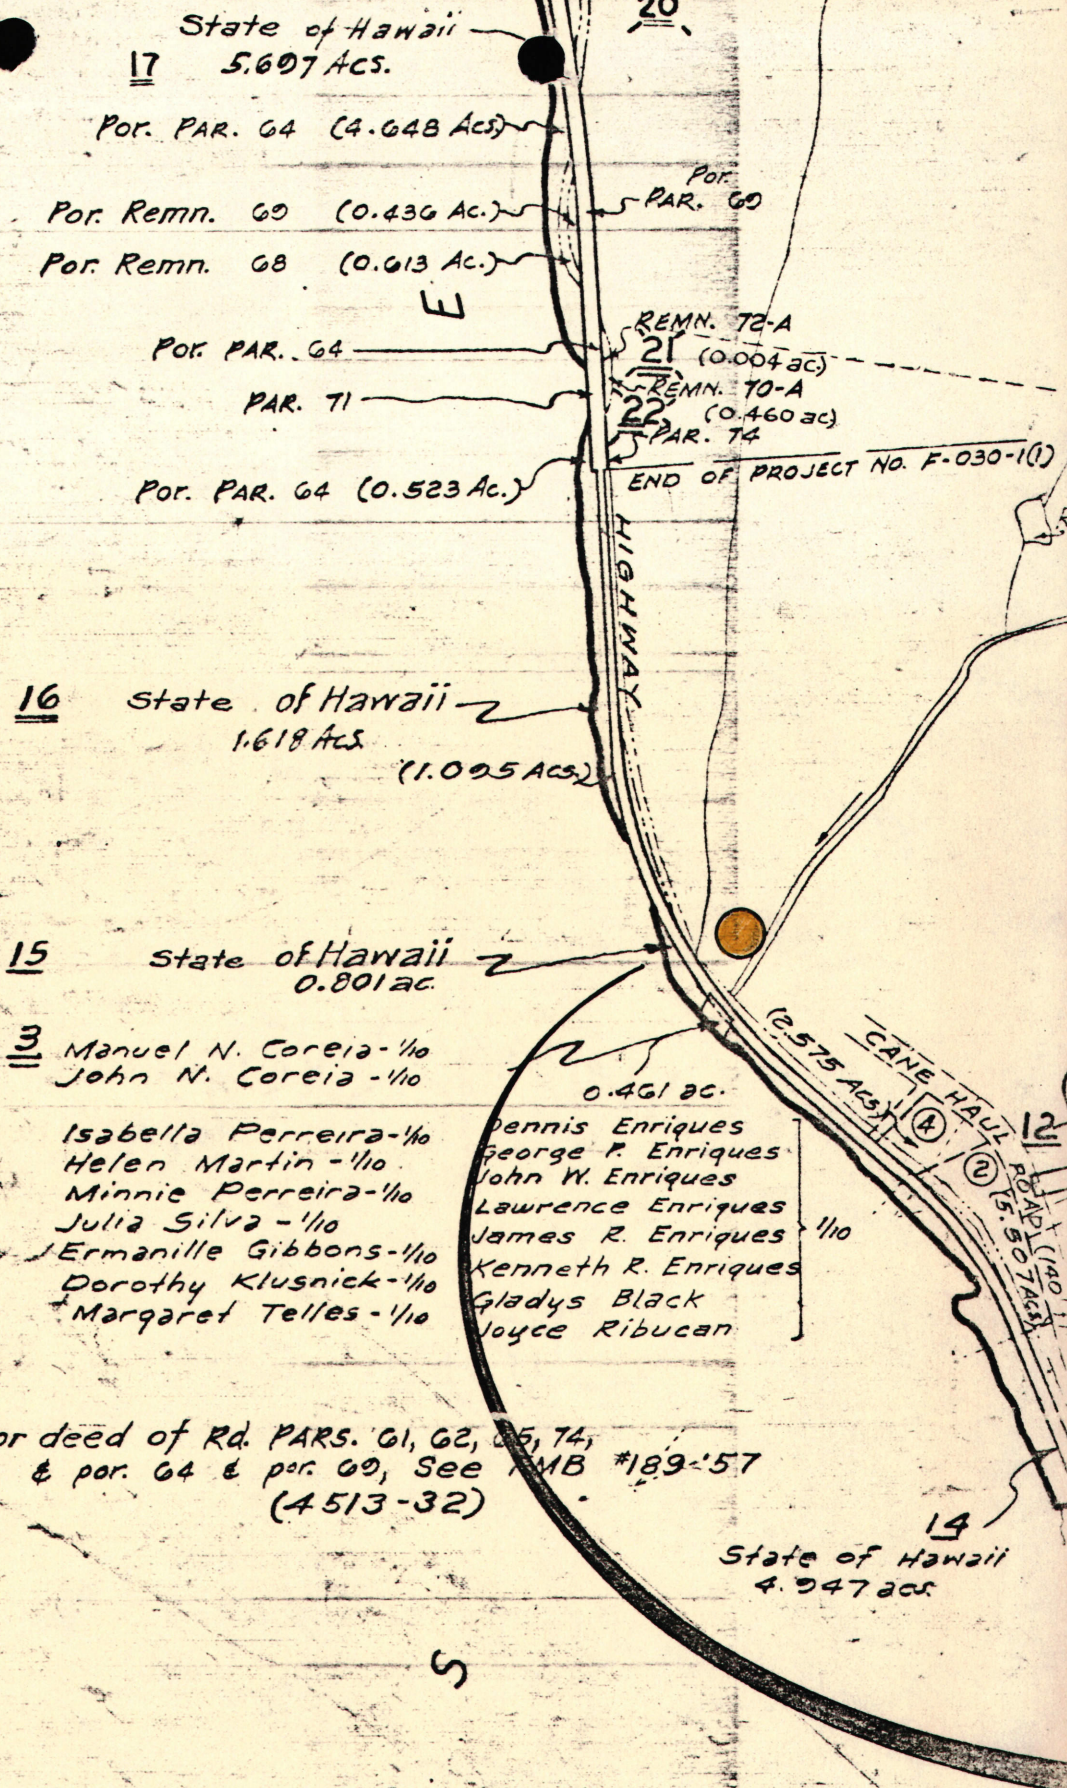 20
State of Hawaii
17 5.697 Acs.
Por. PAR. 64 (4.648 Acs)
Por. Remn. 69 (0.436 Ac.)
Por.
PAR. 69
Por. Remn. 68 (0.613 Ac.)
E
REMN. 72-A
21 (0.004 ac.)
Por. PAR. 64
REMN. 70-A
22 (0.460 ac)
PAR. 71
PAR. 74
END OF PROJECT NO. F-030-1(1)
Por. PAR. 64 (0.523 Ac.)
HIGHWAY
16 State of Hawaii
1.618 Acs.
(1.095 Acs.)
15 State of Hawaii
0.801 ac.
3 Manuel N. Coreia - 1/10
John N. Coreia - 1/10
Isabella Perreira - 1/10
Helen Martin - 1/10
Minnie Perreira - 1/10
Julia Silva - 1/10
Ermanille Gibbons - 1/10
Dorothy Klusnick - 1/10
Margaret Telles - 1/10
0.461 ac.
Dennis Enriques
George P. Enriques
John W. Enriques
Lawrence Enriques
James R. Enriques 1/10
Kenneth R. Enriques
Gladys Black
Joyce Ribucan
(2.575 Acs)
CANE HAUL ROAD 1 (140
4
12
2
(5.507 Acs)
or deed of Rd. PARS. 61, 62, 65, 74,
& por. 64 & por. 69, See #189-'57
(4513-32)
14
State of Hawaii
4.947 acs.
S